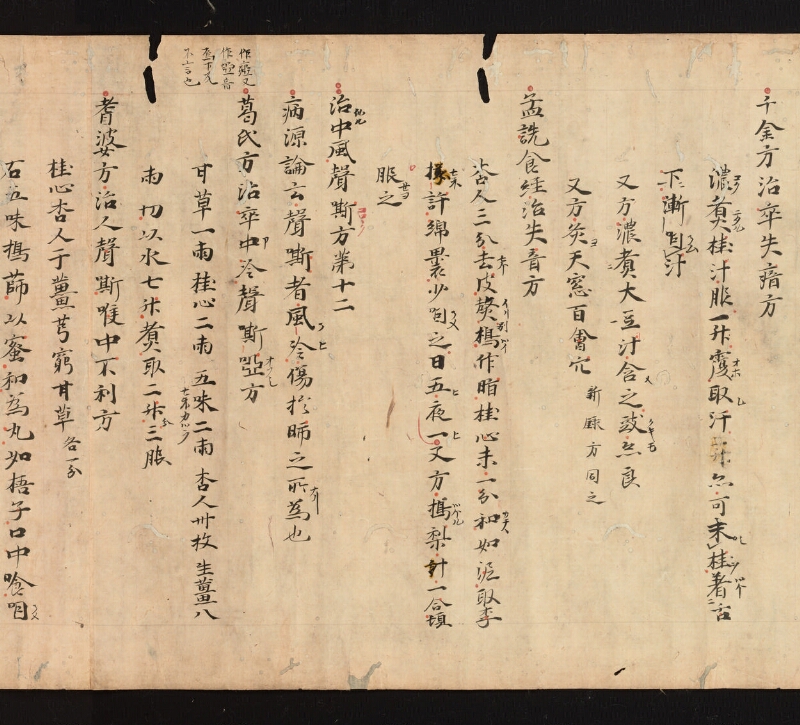 千金方治卒失瘖方
濃煮桂汁服一升覆取汗亦可末桂著舌
下漸咽汁
又方濃煮大豆汁含之豉亦良
又方灸天窓百會穴 新錄方同之
孟詵食経治失音方
杏人三分去皮熬搗作脂桂心末一分和如泥取李
核許綿褁少咽之日五夜一又方搗梨汁一合頓
服之
治中風聲嘶方第十二
病源論云聲嘶者風冷傷於肺之所為也
葛氏方治卒中冷聲嘶啞方
甘草一兩桂心二兩五味二兩杏人卅枚生薑八
兩切以水七升煮取二升三服
耆婆方治人聲嘶喉中不利方
桂心杏人干薑芎窮甘草各一分
石五味搗篩以蜜和為丸如梧子口中唅咽